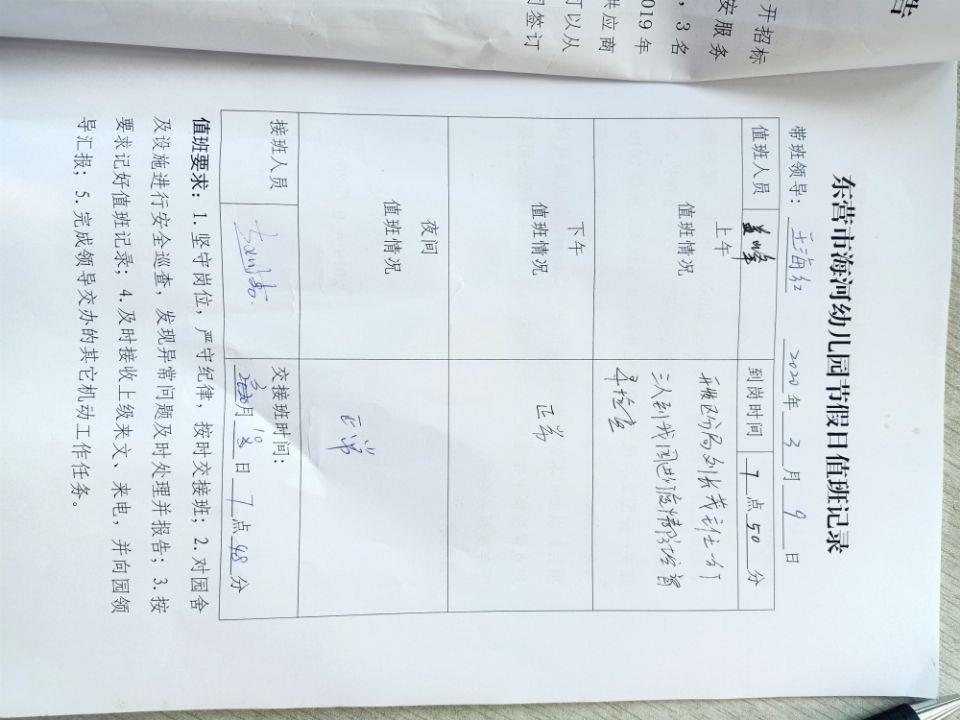 告
开招标
安服务
，3名
019年
供应商
可以从
签订
东营市海河幼儿园节假日值班记录
带班领导：王海红 2020年3月9日
值班人员 到岗时间 7点50分
上午
值班情况
三人到我园进行疫情防控督
下午
值班情况
正常
夜间
值班情况
正常
接班人员 交接班时间：
3月10日7点48分
值班要求：1.坚守岗位，严守纪律，按时交接班；2.对园舍
及设施进行安全巡查，发现异常问题及时处理并报告；3.按
要求记好值班记录；4.及时接收上级来文、来电，并向园领
导汇报；5.完成领导交办的其它机动工作任务。